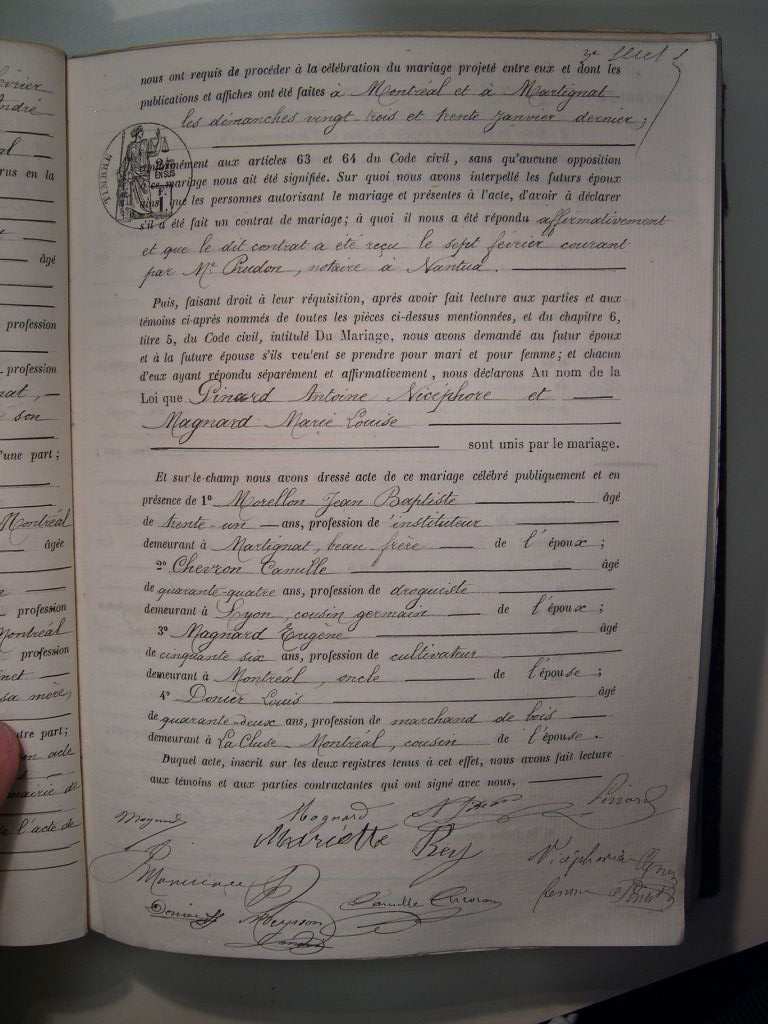 évrier
André
rus en la
âgé
profession
profession
nat, —
e son
'une part ;
Montréal
âgée
profession
Montréal
profession
sa mère,
utre part ;
en acte
mairie de
l'acte de
nous ont requis de procéder à la célébration du mariage projeté entre eux et dont les
publications et affiches ont été faites à Montréal et à Martignat
les dimanches vingt trois et trente Janvier dernier ;
TIMBRE
conformément aux articles 63 et 64 du Code civil, sans qu'aucune opposition
à ce mariage nous ait été signifiée. Sur quoi nous avons interpellé les futurs époux
ainsi que les personnes autorisant le mariage et présentes à l'acte, d'avoir à déclarer
s'il a été fait un contrat de mariage ; à quoi il nous a été répondu affirmativement
et que le dit contrat a été reçu le sept février courant
par Me Prudon, notaire à Nantua.
Puis, faisant droit à leur réquisition, après avoir fait lecture aux parties et aux
témoins ci-après nommés de toutes les pièces ci-dessus mentionnées, et du chapitre 6,
titre 5, du Code civil, intitulé Du Mariage, nous avons demandé au futur époux
et à la future épouse s'ils veulent se prendre pour mari et pour femme ; et chacun
d'eux ayant répondu séparément et affirmativement, nous déclarons Au nom de la
Loi que Pinard Antoine Nicéphore et
Magnard Marie Louise
sont unis par le mariage.
Et sur-le-champ nous avons dressé acte de ce mariage célébré publiquement et en
présence de 1º Morellon Jean Baptiste âgé
de trente-un — ans, profession de instituteur
demeurant à Martignat, beau frère — de l'époux ;
2º Chevron Camille âgé
de quarante-quatre ans, profession de droguiste
demeurant à Lyon, cousin germain — de l'époux ;
3º Magnard Eugène âgé
de cinquante six ans, profession de cultivateur
demeurant à Montréal, oncle — de l'épouse ;
4º Donier Louis âgé
de quarante-deux ans, profession de marchand de bois
demeurant à La Cluse-Montréal, cousin — de l'épouse.
Duquel acte, inscrit sur les deux registres tenus à cet effet, nous avons fait lecture
aux témoins et aux parties contractantes qui ont signé avec nous,
Magnard Magnard Pinard
Mariette Rey
Donier Camille Chevron femme